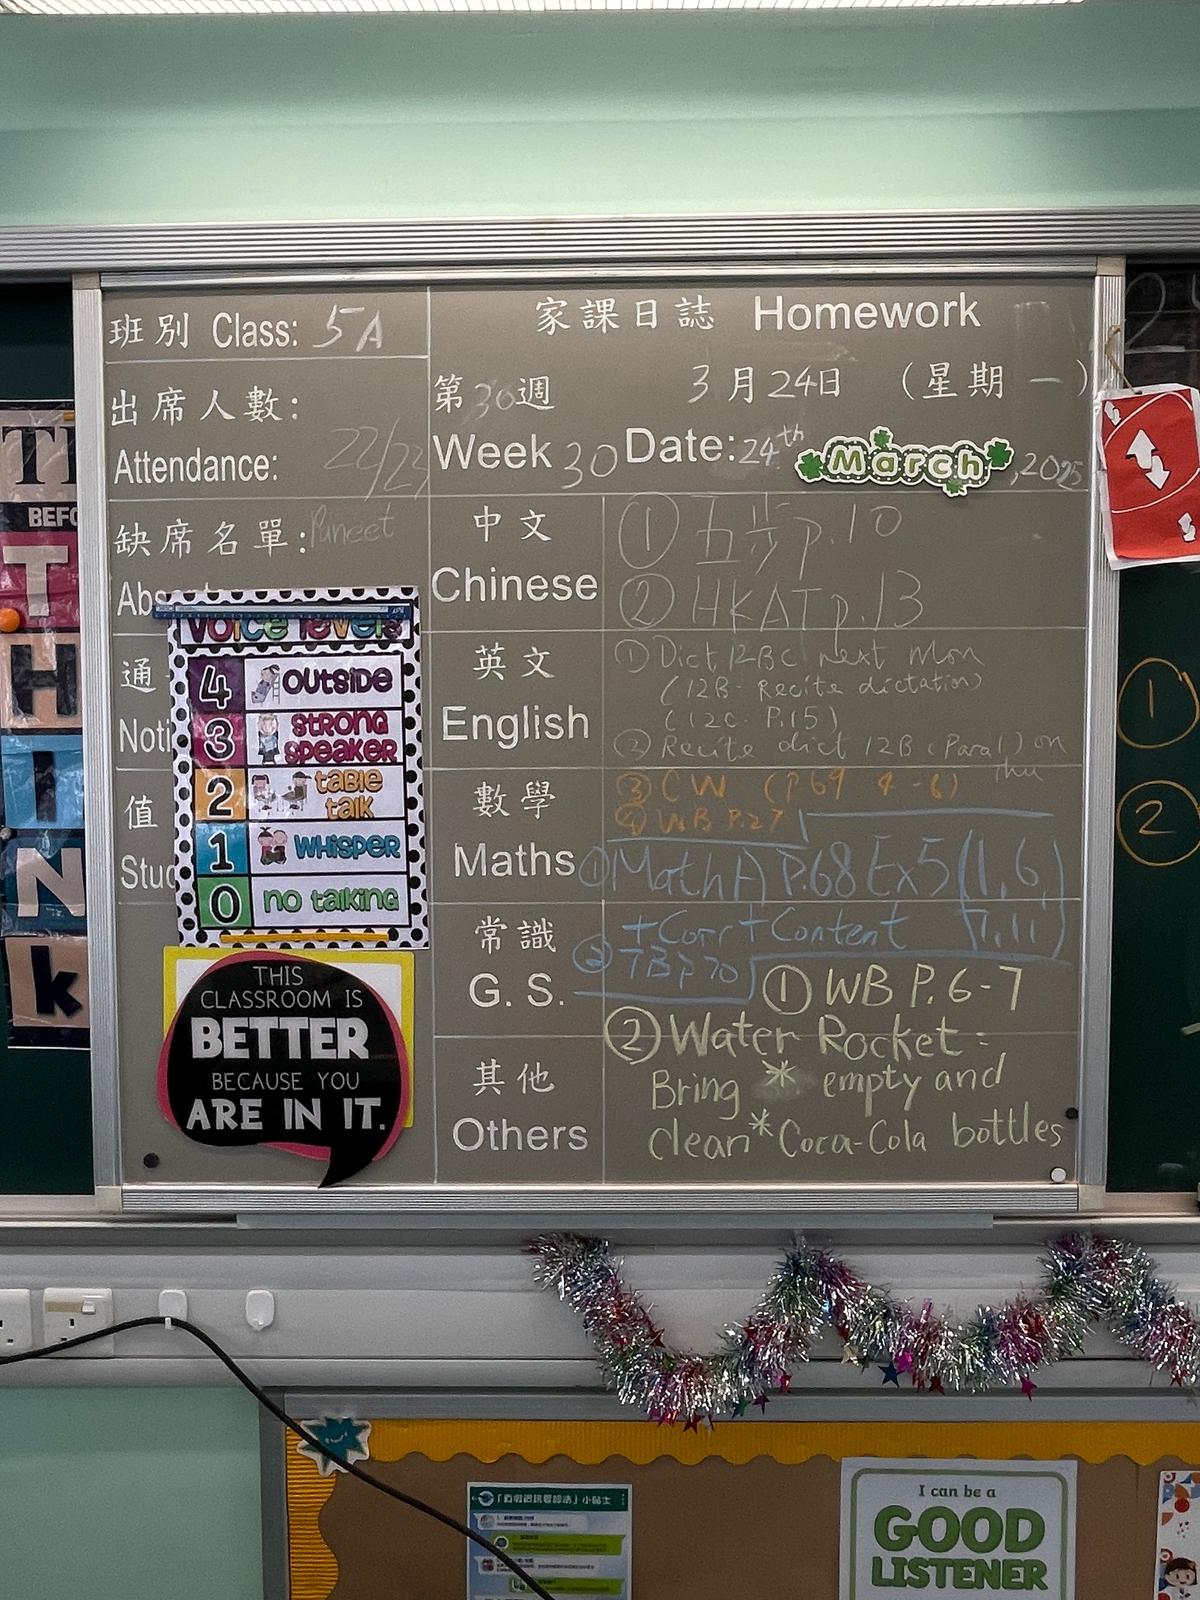 班別 Class: 5A
出席人數:
Attendance: 22/23
缺席名單: Puneet
Abs
通
Noti
值
Stud
家課日誌 Homework
第30週 3月24日 (星期一)
Week 30 Date: 24th March, 2025
中文
Chinese
① 五步 p.10
② HKAT p.13
英文
English
① Dict 12BC next Mon
(12B - Recite dictation)
(12C - P.15)
② Recite dict 12B (Para 1) on
thu
③ CW (P.69 4-6)
④ WB P.27
數學
Maths
① Math A) P.68 Ex5 (1,6,
7,11)
+Corr + Content
② TB p70
常識
G. S.
① WB P. 6-7
② Water Rocket:
Bring * empty and
clean * Coca-Cola bottles
其他
Others
voice levels
4 outside
3 strong speaker
2 table talk
1 whisper
0 no talking
THIS
CLASSROOM IS
BETTER
BECAUSE YOU
ARE IN IT.
BEFO
T
H
I
N
k
①
②
I can be a
GOOD
LISTENER